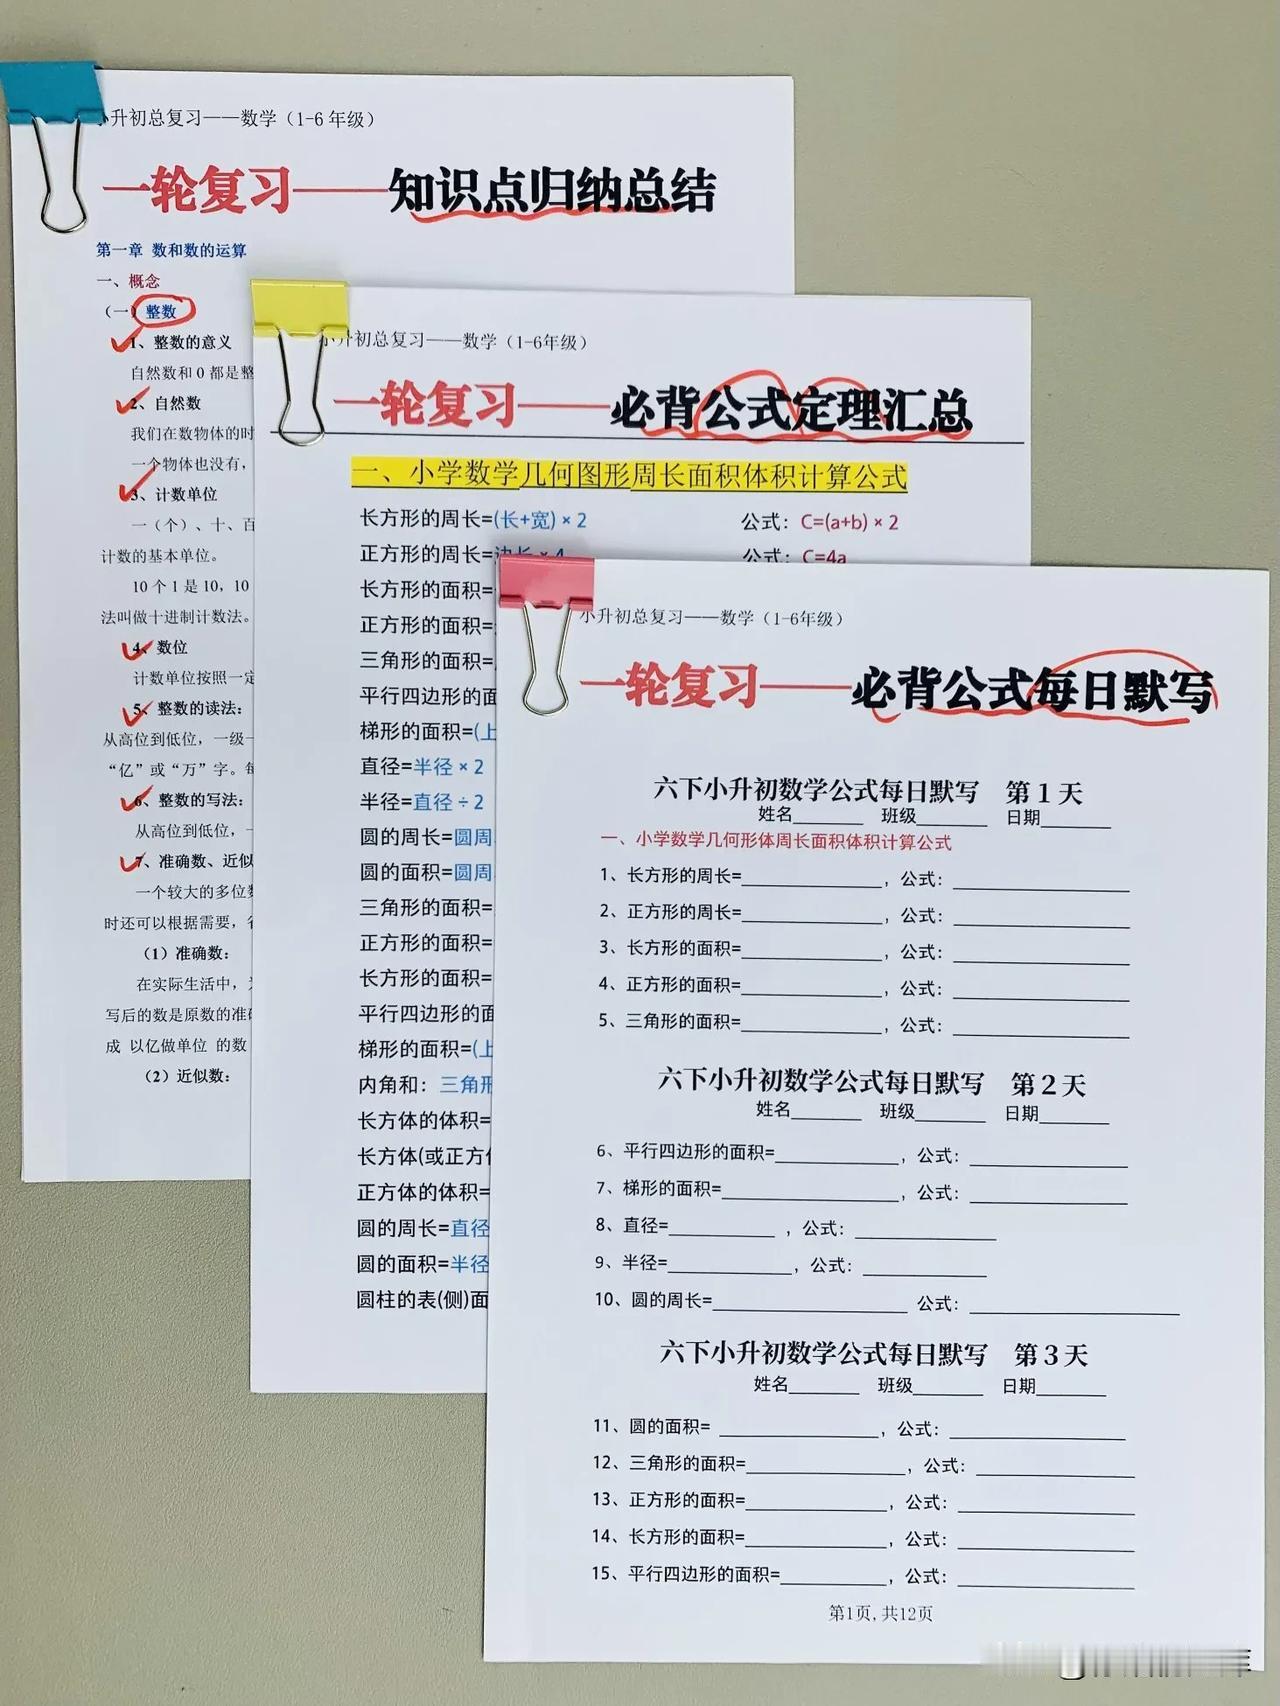 小升初总复习——数学（1-6 年级）
一轮复习——知识点归纳总结
第一章 数和数的运算
一、概念
（一）整数
1、整数的意义
自然数和 0 都是整
2、自然数
我们在数物体的时
一个物体也没有，
3、计数单位
一（个）、十、百
计数的基本单位。
10 个 1 是 10，10
法叫做十进制计数法。
4、数位
计数单位按照一定
5、整数的读法：
从高位到低位，一级一
“亿”或“万”字。每
6、整数的写法：
从高位到低位，一
7、准确数、近似
一个较大的多位数
时还可以根据需要，省
（1）准确数：
在实际生活中，为
写后的数是原数的准确
成 以亿做单位 的数
（2）近似数：
小升初总复习——数学（1-6年级）
一轮复习——必背公式定理汇总
一、小学数学几何图形周长面积体积计算公式
长方形的周长=(长+宽) × 2 公式：C=(a+b) × 2
正方形的周长=边长 × 4 公式：C=4a
长方形的面积=
正方形的面积=
三角形的面积=
平行四边形的面
梯形的面积=(上
直径=半径 × 2
半径=直径 ÷ 2
圆的周长=圆周
圆的面积=圆周
三角形的面积=
正方形的面积=
长方形的面积=
平行四边形的面
梯形的面积=(上
内角和：三角形
长方体的体积=
长方体(或正方体
正方体的体积=
圆的周长=直径
圆的面积=半径
圆柱的表(侧)面
小升初总复习——数学（1-6年级）
一轮复习——必背公式每日默写
六下小升初数学公式每日默写 第 1 天
姓名______ 班级______ 日期______
一、小学数学几何形体周长面积体积计算公式
1、长方形的周长=____________，公式：____________
2、正方形的周长=____________，公式：____________
3、长方形的面积=____________，公式：____________
4、正方形的面积=____________，公式：____________
5、三角形的面积=____________，公式：____________
六下小升初数学公式每日默写 第 2 天
姓名______ 班级______ 日期______
6、平行四边形的面积=____________，公式：____________
7、梯形的面积=____________，公式：____________
8、直径=____________，公式：____________
9、半径=____________，公式：____________
10、圆的周长=____________ 公式：____________
六下小升初数学公式每日默写 第 3 天
姓名______ 班级______ 日期______
11、圆的面积=____________，公式：____________
12、三角形的面积=____________，公式：____________
13、正方形的面积=____________，公式：____________
14、长方形的面积=____________，公式：____________
15、平行四边形的面积=____________，公式：____________
第1页，共12页